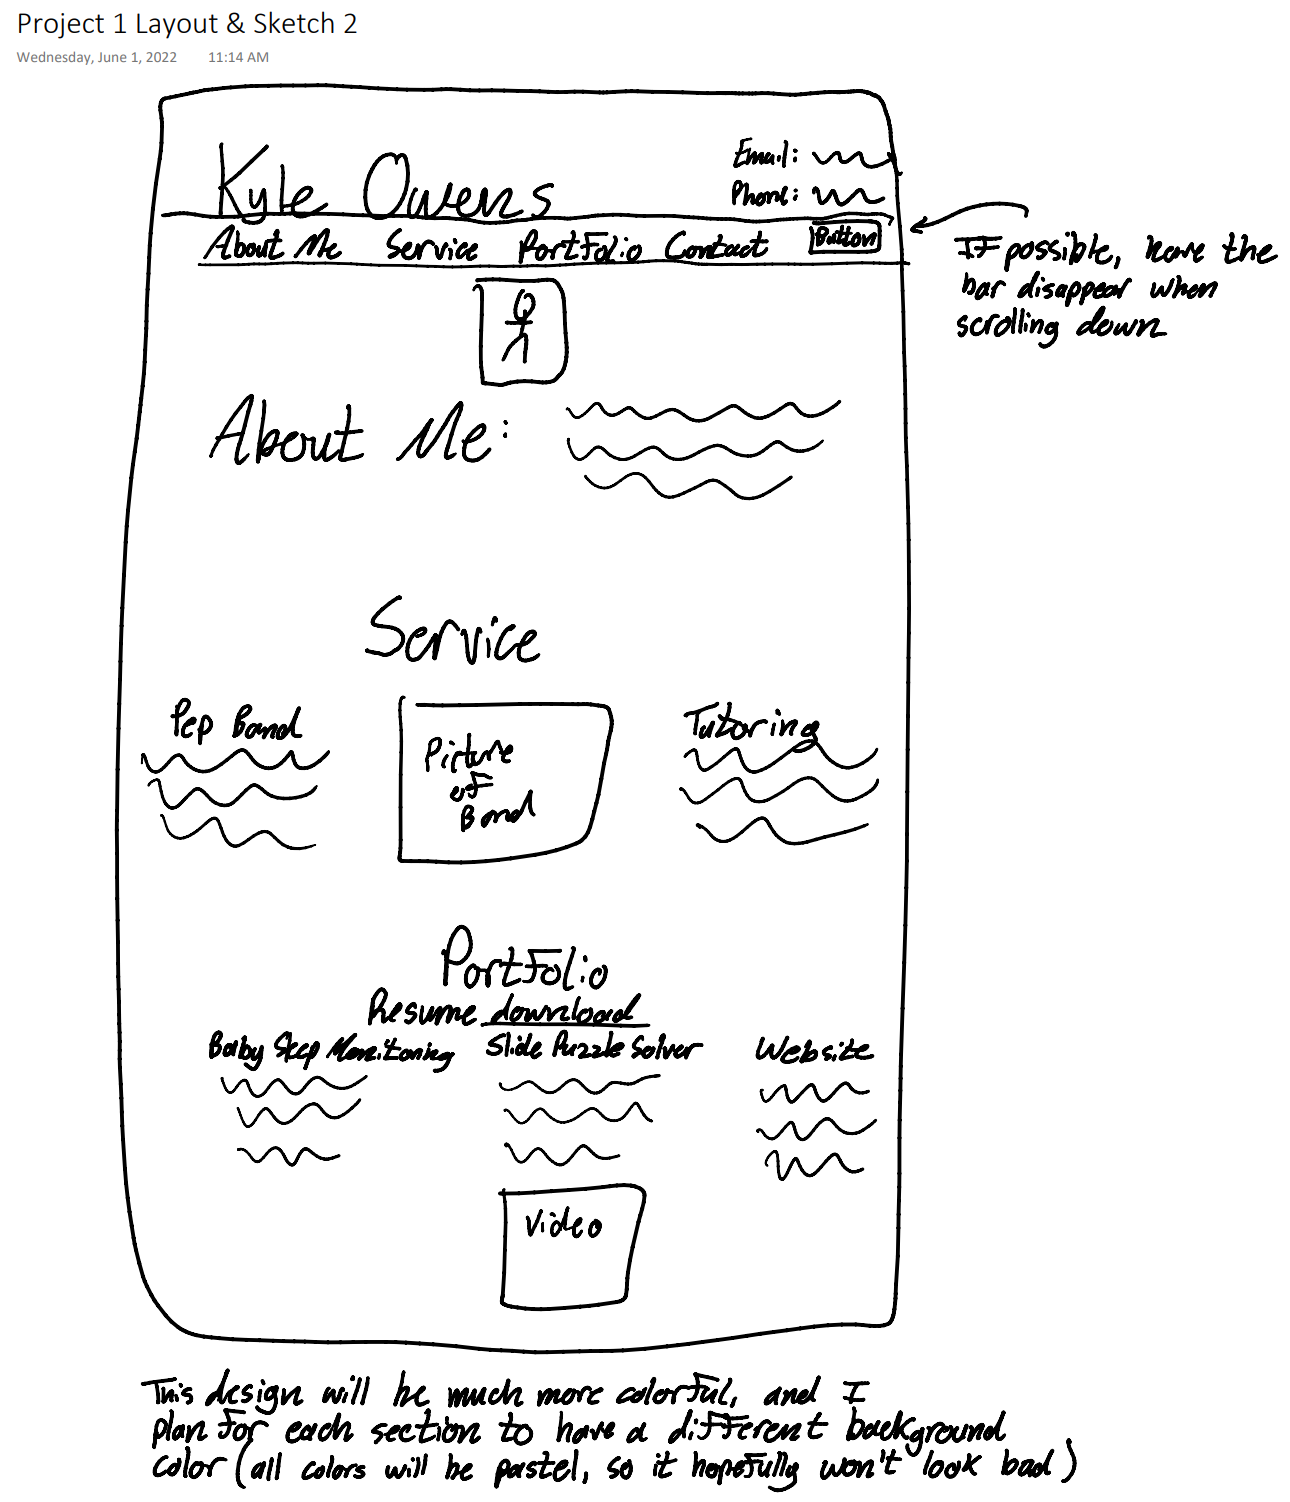 Project 1 Layout & Sketch 2
Wednesday, June 1, 2022 11:14 AM
Kyle Owens
Email:
Phone:
About Me Service Portfolio Contact Button
If possible, have the
bar disappear when
scrolling down
About Me:
Service
Pep Band
Picture
of
Band
Tutoring
Portfolio
Resume download
Baby Sleep Monitoring Slide Puzzle Solver Website
Video
This design will be much more colorful, and I
plan for each section to have a different background
color (all colors will be pastel, so it hopefully won't look bad)